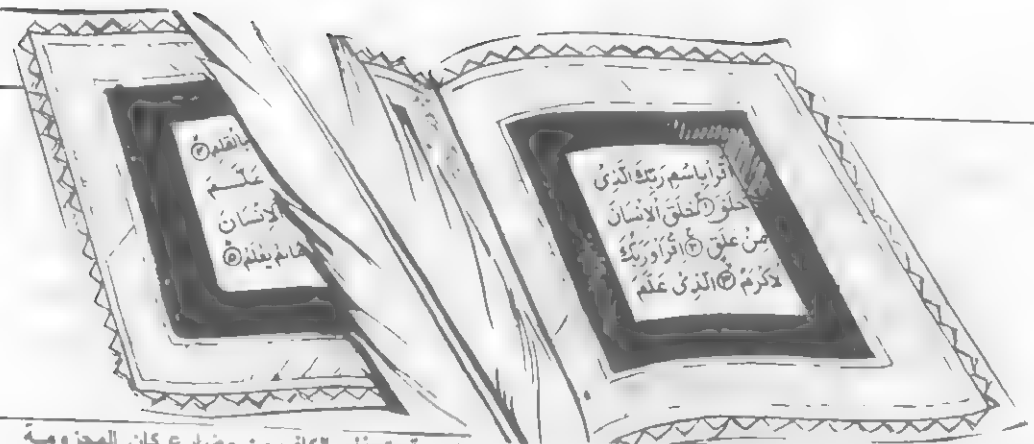 اقرأ باسم ربك الذي
خلق ① خلق الانسان
من علق ② اقرأ وربك
لاكرم ③ الذي علم
بالقلم ④
علــم
الإنسان
مالم يعلم ⑤
المجزومة